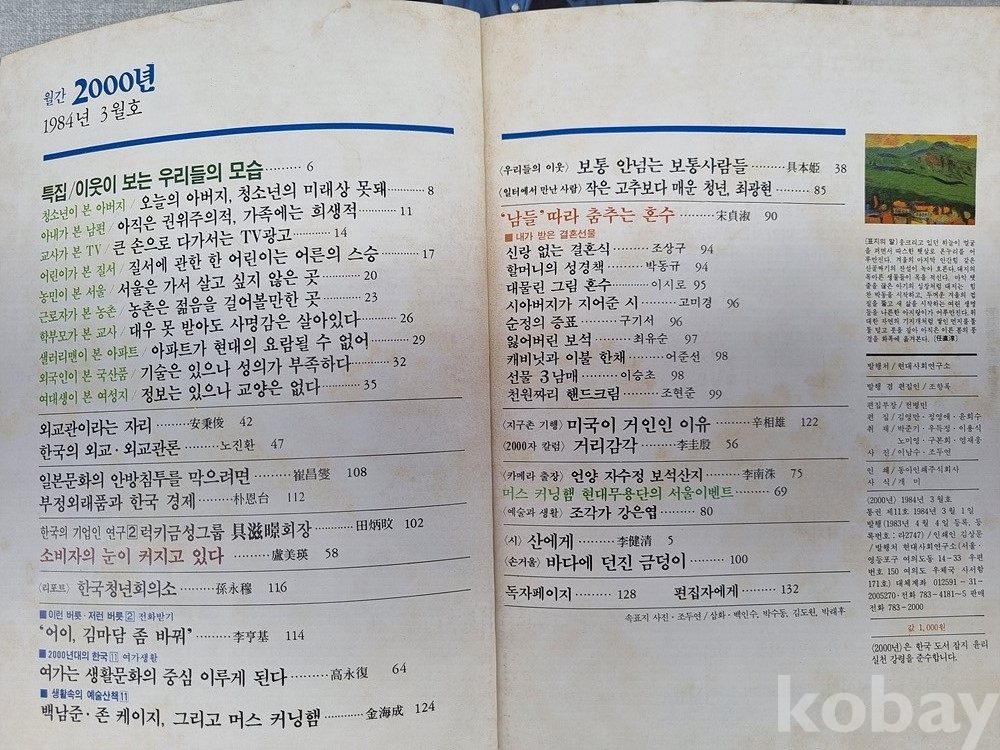 월간 2000년
1984년 3월호
특집/이웃이 보는 우리들의 모습 ········· 6
청소년이 본 아버지 / 오늘의 아버지, 청소년의 미래상 못돼 ········· 8
아내가 본 남편 / 아직은 권위주의적, 가족에는 희생적 ········· 11
교사가 본 TV / 큰 손으로 다가서는 TV광고 ········· 14
어린이가 본 질서 / 질서에 관한 한 어린이는 어른의 스승 ········· 17
농민이 본 서울 / 서울은 가서 살고 싶지 않은 곳 ········· 20
근로자가 본 농촌 / 농촌은 젊음을 걸어볼만한 곳 ········· 23
학부모가 본 교사 / 대우 못 받아도 사명감은 살아있다 ········· 26
샐러리맨이 본 아파트 / 아파트가 현대의 요람될 수 없어 ········· 29
외국인이 본 국산품 / 기술은 있으나 성의가 부족하다 ········· 32
여대생이 본 여성지 / 정보는 있으나 교양은 없다 ········· 35
외교관이라는 자리 ········· 安秉俊 42
한국의 외교·외교관론 ········· 노진환 47
일본문화의 안방침투를 막으려면 ········· 崔昌燮 108
부정외래품과 한국 경제 ········· 朴恩台 112
한국의 기업인 연구 2 럭키금성그룹 具滋暻회장 ········· 田炳旼 102
소비자의 눈이 커지고 있다 ········· 盧美瑛 58
〈리포트〉 한국청년회의소 ········· 孫永穆 116
■ 이런 버릇·저런 버릇 2 전화받기
“어이, 김마담 좀 바꿔” ········· 李亨基 114
■ 2000년대의 한국 11 여가생활
여가는 생활문화의 중심 이루게 된다 ········· 高永復 64
■ 생활속의 예술산책 11
백남준·존 케이지, 그리고 머스 커닝햄 ········· 金海成 124
〈우리들의 이웃〉 보통 안넘는 보통사람들 ········· 具本姬 38
〈일터에서 만난 사람〉 작은 고추보다 매운 청년, 최광현 ········· 85
“남들” 따라 춤추는 혼수 ········· 宋貞淑 90
■ 내가 받은 결혼선물
신랑 없는 결혼식 ········· 조상구 94
할머니의 성경책 ········· 박동규 94
대물린 그림 혼수 ········· 이시로 95
시아버지가 지어준 시 ········· 고미경 96
순정의 증표 ········· 구기서 96
잃어버린 보석 ········· 최유순 97
캐비닛과 이불 한채 ········· 어준선 98
선물 3남매 ········· 이승호 98
천원짜리 핸드크림 ········· 조현준 99
〈지구촌 기행〉 미국이 거인인 이유 ········· 辛相雄 122
〈2000자 칼럼〉 거리감각 ········· 李圭殷 56
〈카메라 출장〉 언양 자수정 보석산지 ········· 李南洙 75
머스 커닝햄 현대무용단의 서울이벤트 ········· 69
〈예술과 생활〉 조각가 강은엽 ········· 80
〈시〉 산에게 ········· 李健清 5
〈손거울〉 바다에 던진 금덩이 ········· 100
독자페이지 ········· 128 편집자에게 ········· 132
속표지 사진·조두연/삽화·백인수, 박수동, 김도원, 박래후
[표지의 말] 웅크리고 있던 하늘이 얼굴
을 펴면서 따스한 햇살로 온누리를 어
루만진다. 겨울의 마지막 안간힘 같은
산골짜기의 잔설이 녹아 흐른다. 대지의
목마른 생물들이 목을 적신다.
[任直淳]
발행처/현대사회연구소
발행 겸 편집인/조향록
편집부장/전병민
편 집/김영만·정영애·윤희수
취 재/박준기·우득정·이용식
노미영·구본희·엄재용
사 진/이남수·조두연
인 쇄/동아인쇄주식회사
사 식/개 미
〈2000년〉 1984년 3월호
통권 제11호 1984년 3월 1일
발행 (1983년 4월 4일 등록, 등
록번호: 라2747) / 인쇄인 김상문
/ 발행처 현대사회연구소 (서울·
영등포구 여의도동 14-33 우편
번호 150 여의도 우체국 사서함
171호) 대체계좌 012591-31-
2005270·전화 783-4181~5 판매
전화 783-2000
값 1,000원
〈2000년〉은 한국 도서 잡지 윤리
실천 강령을 준수합니다.
kobay